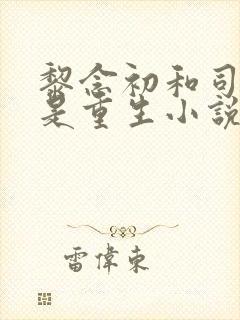 黎念初和司
是重生小說
雷偉東